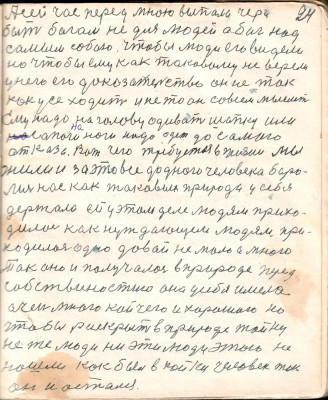 24
А сей час перед мною выпала черг
быть богам не для людей а бог над
самим собою, чтобы люди его видели
но чтобы ему как таковому не верели
у него его доказательство он не так
как усе ходит и не то он совсем мыслит
Ему надо на голову одивать шапку или
на сапоги ноги надо оден до самого
отказа. Вот чего требуется в жизни мы
жили и за это все до дного человека боро-
лись нас как таковых природа у себя
держала ей у этом деле людям прихо-
дилось как нуждающем людям при-
ходилося одно давай не мало а много
Так оно и получалося в природе пред
собственностию она у себя имела
очен много кой чего и хорошого но
чтобы раскрыть в природе тайну
не же люди ни эти люди этого не
нашли как был в тайни человек так
он и остался.